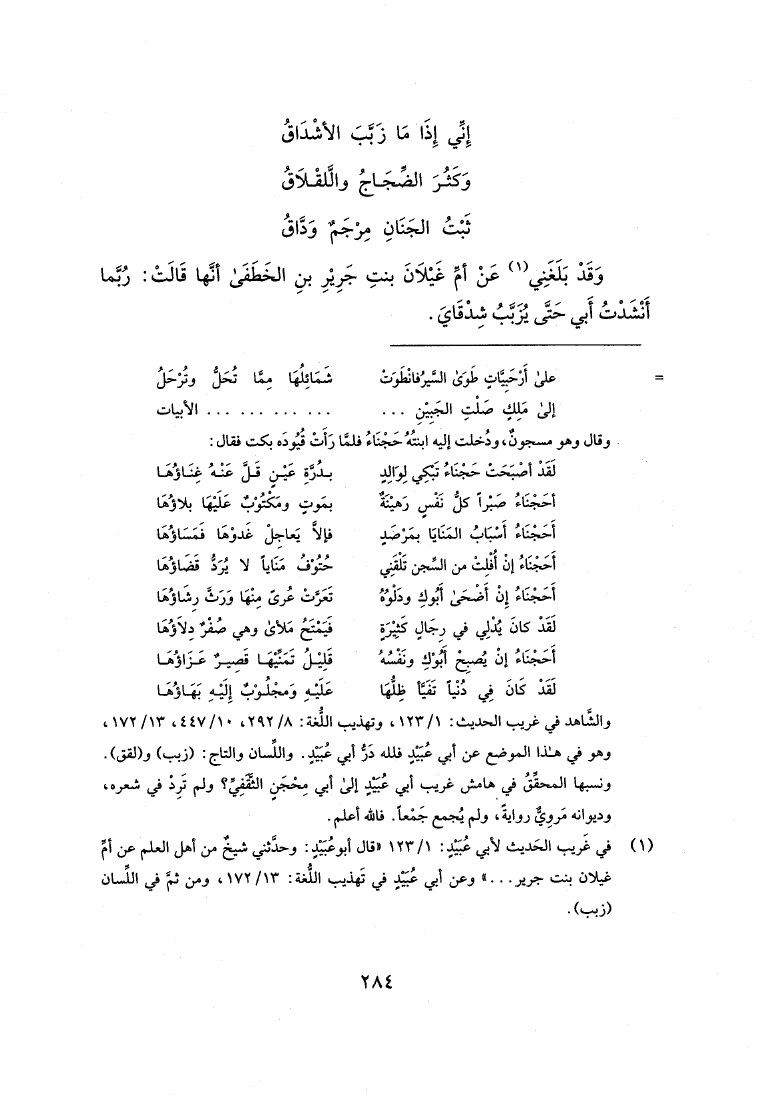 إِنِّي إِذَا مَا زَبَّبَ الأَشْدَاقُ
وَكَثُرَ الضِّجَاجُ واللَّقْلَاقُ
ثَبْتُ الجَنَانِ مِرْجَمٌ وَدَّاقُ
وَقَدْ بَلَغَنِي(١) عَنْ أُمِّ غَيْلَانَ بنتِ جَرِيْرِ بنِ الخَطَفَىٰ أَنَّها قَالَتْ: رُبَّما
أَنْشَدْتُ أَبي حَتَّى يُزَبِّبُ شِدْقَايَ.
= على أَرْحَبِيَّاتٍ طَوَىٰ السَّيرُفانْطَوَتْ شَمَائِلُهَا مِمَّا تُحَلُّ وتُرْحَلُ
إلىٰ مَلِكٍ صَلْتِ الجَبِيْنِ ... ... ... ... ... الأبيات
وقال وهو مسجونٌ، ودُخلت إليه ابنتُهُ حَجْنَاءُ فلمَّا رَأَتْ قُيُودَه بكت فقال:
لَقَدْ أَصْبَحَتْ حَجْنَاءُ تَبْكِي لِوَالِدٍ بِدُرَّةِ عَيْنٍ قَلَّ عَنْهُ غِنَاؤُهَا
أَحَجْنَاءُ صَبْراً كلُّ نَفْسٍ رَهِيْنَةٌ بمَوتٍ ومَكْتُوْبٌ عَلَيْهَا بلاؤُهَا
أَحَجْنَاءُ أَسْبَابُ المَنَايَا بِمَرْصَدٍ فإلاَّ يَعاجِلْ غَدوُهَا فَمَسَاؤُهَا
أَحَجْنَاءُ إنْ أُفْلِتْ من السِّجن تَلْقَنِي حُتُوْفُ مَنَاياً لا يُرَدُّ قَضَاؤُهَا
أَحَجْنَاءُ إِنْ أَضْحَىٰ أَبُوكِ ودَلْوُهُ تَعَرَّتْ عُرىً مِنْهَا وَرَثَّ رِشَاؤُهَا
لَقَدْ كانَ يُدْلِي في رِجَالٍ كَثِيْرَةٍ فَيَمْتَحُ مَلأىٰ وهي صُفْرٌ دِلَاؤُهَا
أَحَجْنَاءُ إنْ يُصبِحْ أَبُوْكِ ونَفْسُهُ قَلِيْلٌ تَمَنِّيْهَا قَصِيرٌ عَزَاؤُهَا
لَقَدْ كَانَ فِي دُنْياً تَفَيَّأَ ظِلُّهَا عَلَيْهِ وَمَجْلُوْبٌ إِلَيْهِ بَهَاؤُهَا
والشَّاهد في غريب الحديث: ١/ ١٢٣، وتهذيب اللُّغة: ٨/ ٢٩٢، ١٠/ ٤٤٧، ١٣/ ١٧٢،
وهو في هـٰذا الموضع عن أبي عُبَيْدٍ فلله دَرُّ أبي عُبَيْدٍ. واللِّسان والتاج: (زبب) و(لقق).
ونسبها المحقِّقُ في هامش غريب أبي عُبَيْدٍ إلىٰ أبي مِحْجَنٍ الثَّقَفِيِّ؟ ولم تَرِدْ في شعره،
وديوانه مَرويٌّ روايةً، ولم يُجمع جَمْعاً. فالله أعلم.
(١) في غَريب الحَديث لأبي عُبَيْدٍ: ١/ ١٢٣ «قال أبوعُبَيْدٍ: وحدَّثني شيخٌ من أهل العلم عن أمِّ
غيلان بنت جرير...» وعن أبي عُبَيْدٍ في تَهذيب اللُّغة: ١٣/ ١٧٢، ومن ثمَّ في اللِّسان
(زبب).
٢٨٤